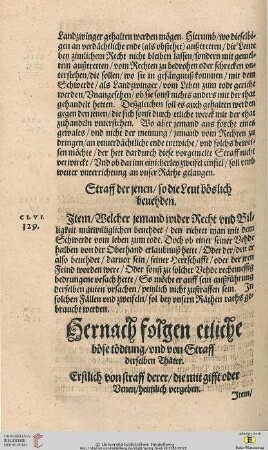 Landzwinger gehalten werden mögen. Hierumb/wo dieselbi-
gen an verdächtliche ende (als obstehet) außtretten/die Leute
bey zimlichem Recht nicht bleiben lassen/sondern mit gemel-
tem außtretten/vom Rechten zu bedrohen oder schrecken vn-
terstehen/die sollen/wo sie in gefängnuß kommen/mit dem
Schwerde/als Landzwinger/vom Leben zum tode gericht
werden/Vnangesehen/ob sie sonst nichts anders mit der that
gehandelt hetten. Deßgleichen soll es auch gehalten werden
gegen den jenen/die sich sonst durch etliche werck mit der that
zuhandeln vnterstehen. Wo aber jemand auß forcht eines
gewalts/vnd nicht der meinung/jemand vom Rechten zu
dringen/an vnuerdächtliche ende entwiche/vnd solchs bewei-
sen möchte/der hett dardurch diese vorgemelte Straff nicht
verwirckt/Vnd ob darinn einicherley zweifel einfiel/soll vmb
weiter vnterrichtung an vnser Räthe gelangen.
Straff der jenen/so die Leut bößlich
bevehden.
CLVI.
129.
Item/Welcher jemand wider Recht vnd Bil-
ligkeit mutwilliglichen bevehdet/den richtet man mit dem
Schwerde vom leben zum tode. Doch ob einer seiner Vehde
halben von der Oberhand erlaubniß hette/Oder der/den er
also bevehdet/darumb sein/seiner Herrschafft/oder der jren
Feind worden were/Oder sonst zu solcher Vehde rechtmessig
bedrungen vrsach hette/So möchte er auff sein außführung
derselben guten vrsachen/peinlich nicht zustraffen sein. In
solchen Fällen vnd zweifeln/sol bey vnsern Räthen raths ge-
braucht werden.
Hernach folgen etliche
böse tödtung/vnd von Straff
derselben Thäter.
Erstlich von straff derer/die mit gifft oder
Venen/heimlich vergeben.
Item/
Universitätsbibliothek Heidelberg